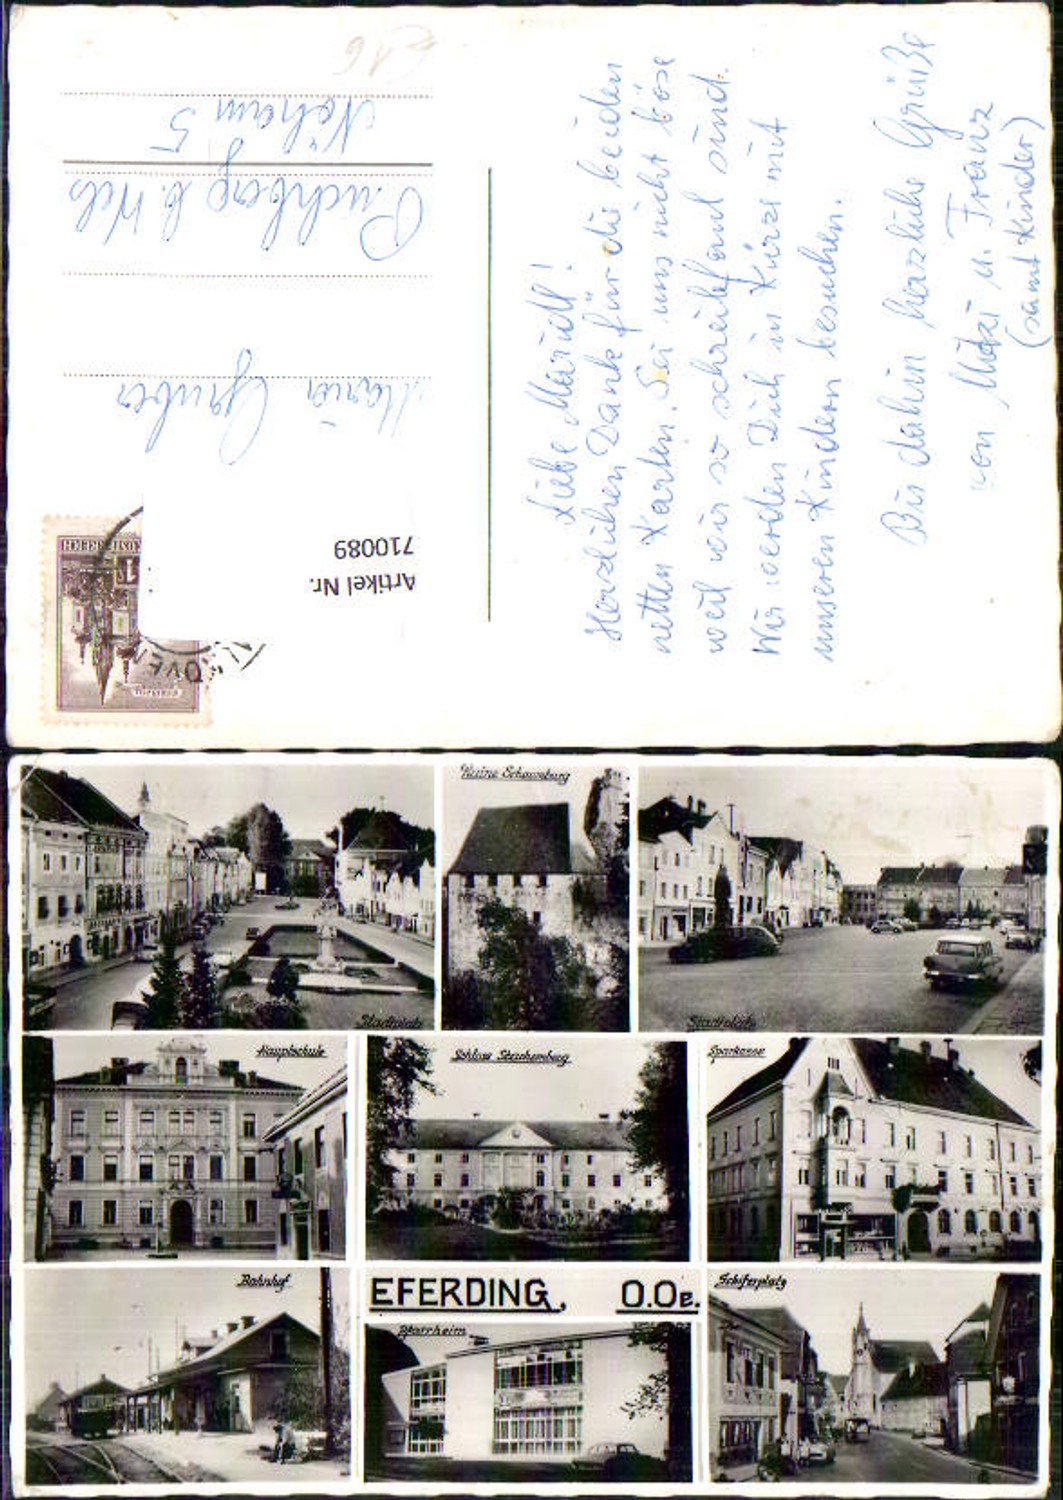 Liebe Maridl!
Herzlichen Dank für die beiden
netten Karten. Sei uns nicht böse
weil wir so schreibfaul sind.
Wir werden Dich in Kürze mit
unseren Kindern besuchen.
Bis dahin herzliche Grüße
von Mitzi u. Franz
(samt Kinder)
Artikel Nr.
710089
Maria Gruber
Puchberg b. Wels
Nöham 5
ALKOVEN
Ruine Schaunburg
Stadtplatz
Stadtplatz
Hauptschule
Schloss Starhemberg
Sparkasse
Bahnhof
EFERDING, O.Oe.
Schiferplatz
Pfarrheim